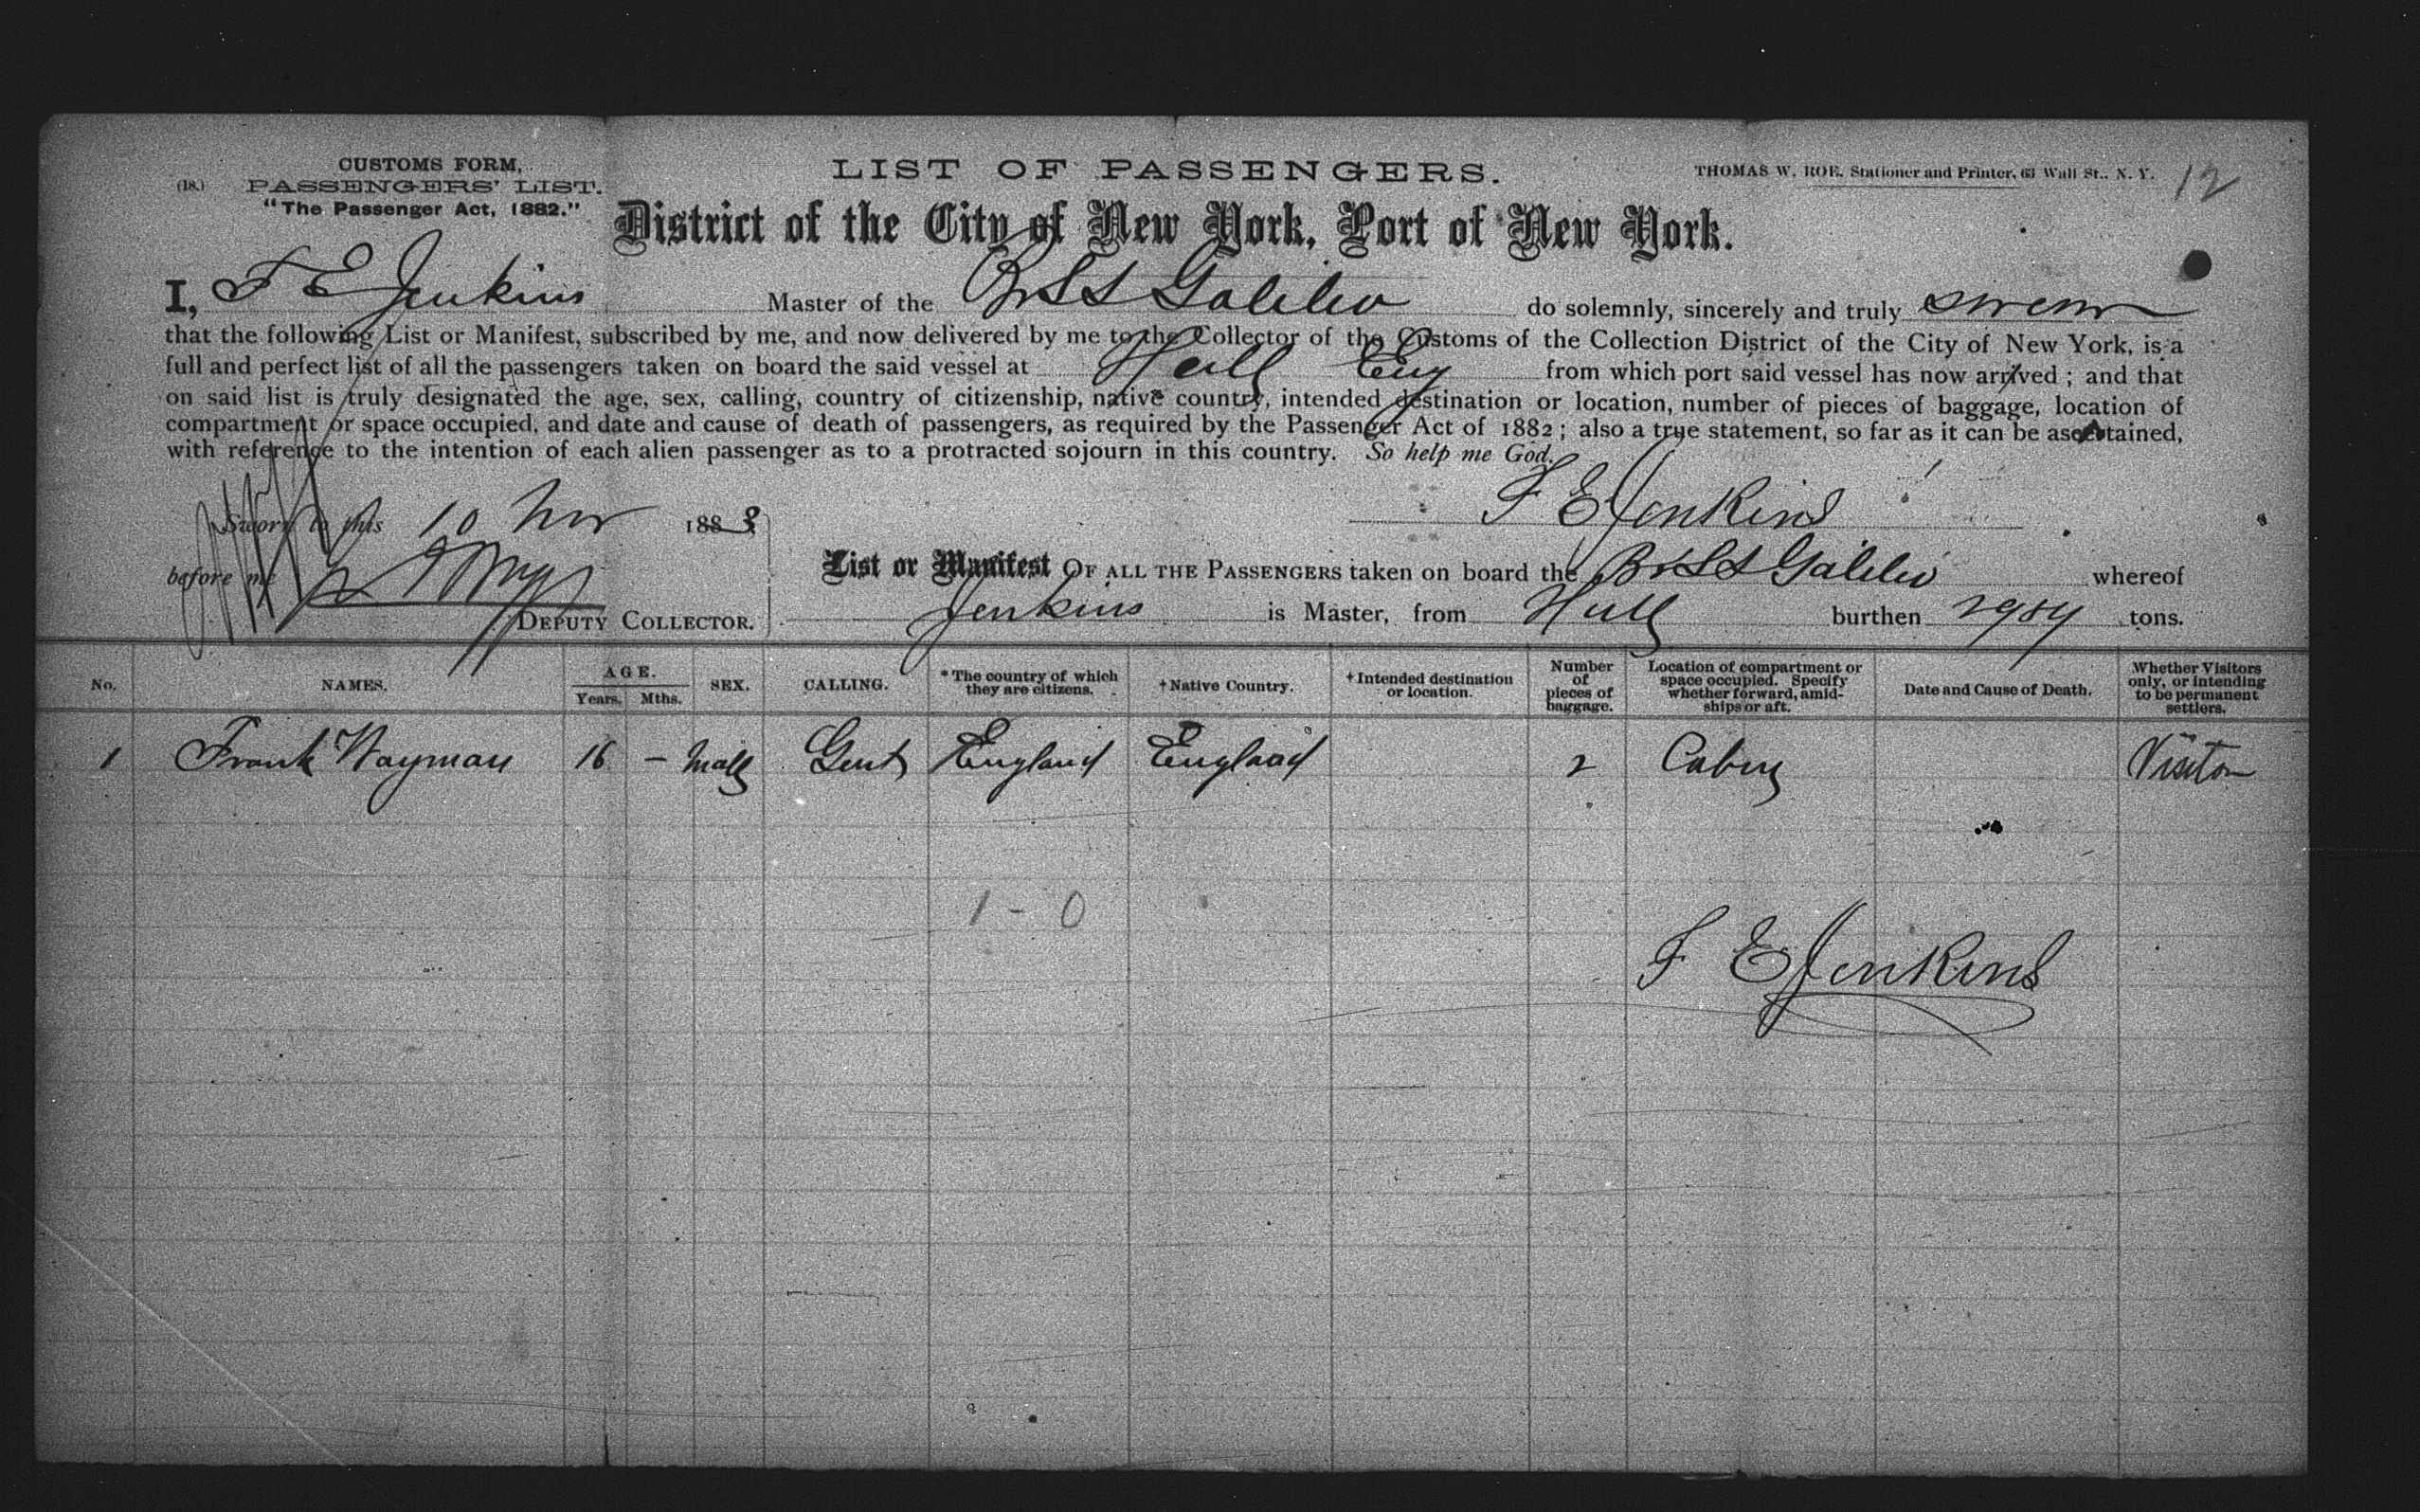 CUSTOMS FORM,
(18.) PASSENGERS' LIST.
"The Passenger Act, 1882."
LIST OF PASSENGERS.
THOMAS W. ROE. Stationer and Printer, 63 Wall St., N. Y.
12
District of the City of New York, Port of New York.
I, F E Jenkins Master of the Br SS Galileo do solemnly, sincerely and truly swear
that the following List or Manifest, subscribed by me, and now delivered by me to the Collector of the Customs of the Collection District of the City of New York, is a
full and perfect list of all the passengers taken on board the said vessel at Hull Eng from which port said vessel has now arrived; and that
on said list is truly designated the age, sex, calling, country of citizenship, native country, intended destination or location, number of pieces of baggage, location of
compartment or space occupied, and date and cause of death of passengers, as required by the Passenger Act of 1882; also a true statement, so far as it can be ascertained,
with reference to the intention of each alien passenger as to a protracted sojourn in this country. So help me God.
F E Jenkins
Sworn to this 10 Nov 1888
before me
DEPUTY COLLECTOR.
List or Manifest OF ALL THE PASSENGERS taken on board the Br SS Galileo whereof
Jenkins is Master, from Hull burthen tons.
No. NAMES. AGE. Years. Mths. SEX. CALLING. *The country of which they are citizens. †Native Country. †Intended destination or location. Number of pieces of baggage. Location of compartment or space occupied. Specify whether forward, amidships or aft. Date and Cause of Death. Whether Visitors only, or intending to be permanent settlers.
1 Frank Wayman 16 – Male Gent England England 2 Cabin Visitor
1 - 0
F E Jenkins